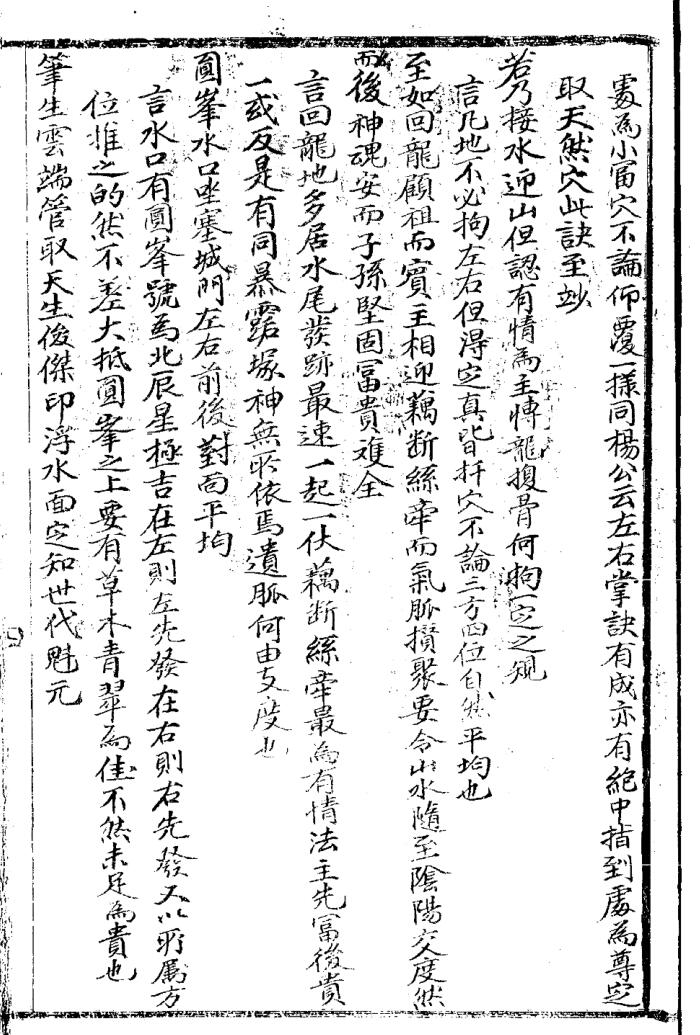 處為小富穴不論仰覆一樣同楊公云左右掌訣有成亦有絕中指到處為尊定
取天然穴此訣至妙
若乃接水迎山但認有情為主愽龍換骨何拘一定之規
言凢地不必拘左右但淂定真皆扦穴不論三方四位自然平均也
至如回龍顧祖而賓主相迎藕断絲牽而氣脈攅聚要令山水隨至陰陽交度然
而後神魂安而子孫堅固冨貴难全
言回龍地多居水尾發跡最速一起一伏藕断絲牽最為有情法主先冨後貴
一或反是有同暴露塚神無所依焉遺脈何由交度也
圓峯水口坐塞城門左右前後對面平均
言水口有圓峯號為北辰星極吉在左則左先發在右則右先發又以所属方
位推之的然不差大抵圓峯之上要有草木青翠為佳不然未足為貴也
筆生雲端管取天生俊傑印浮水面定知世代魁元